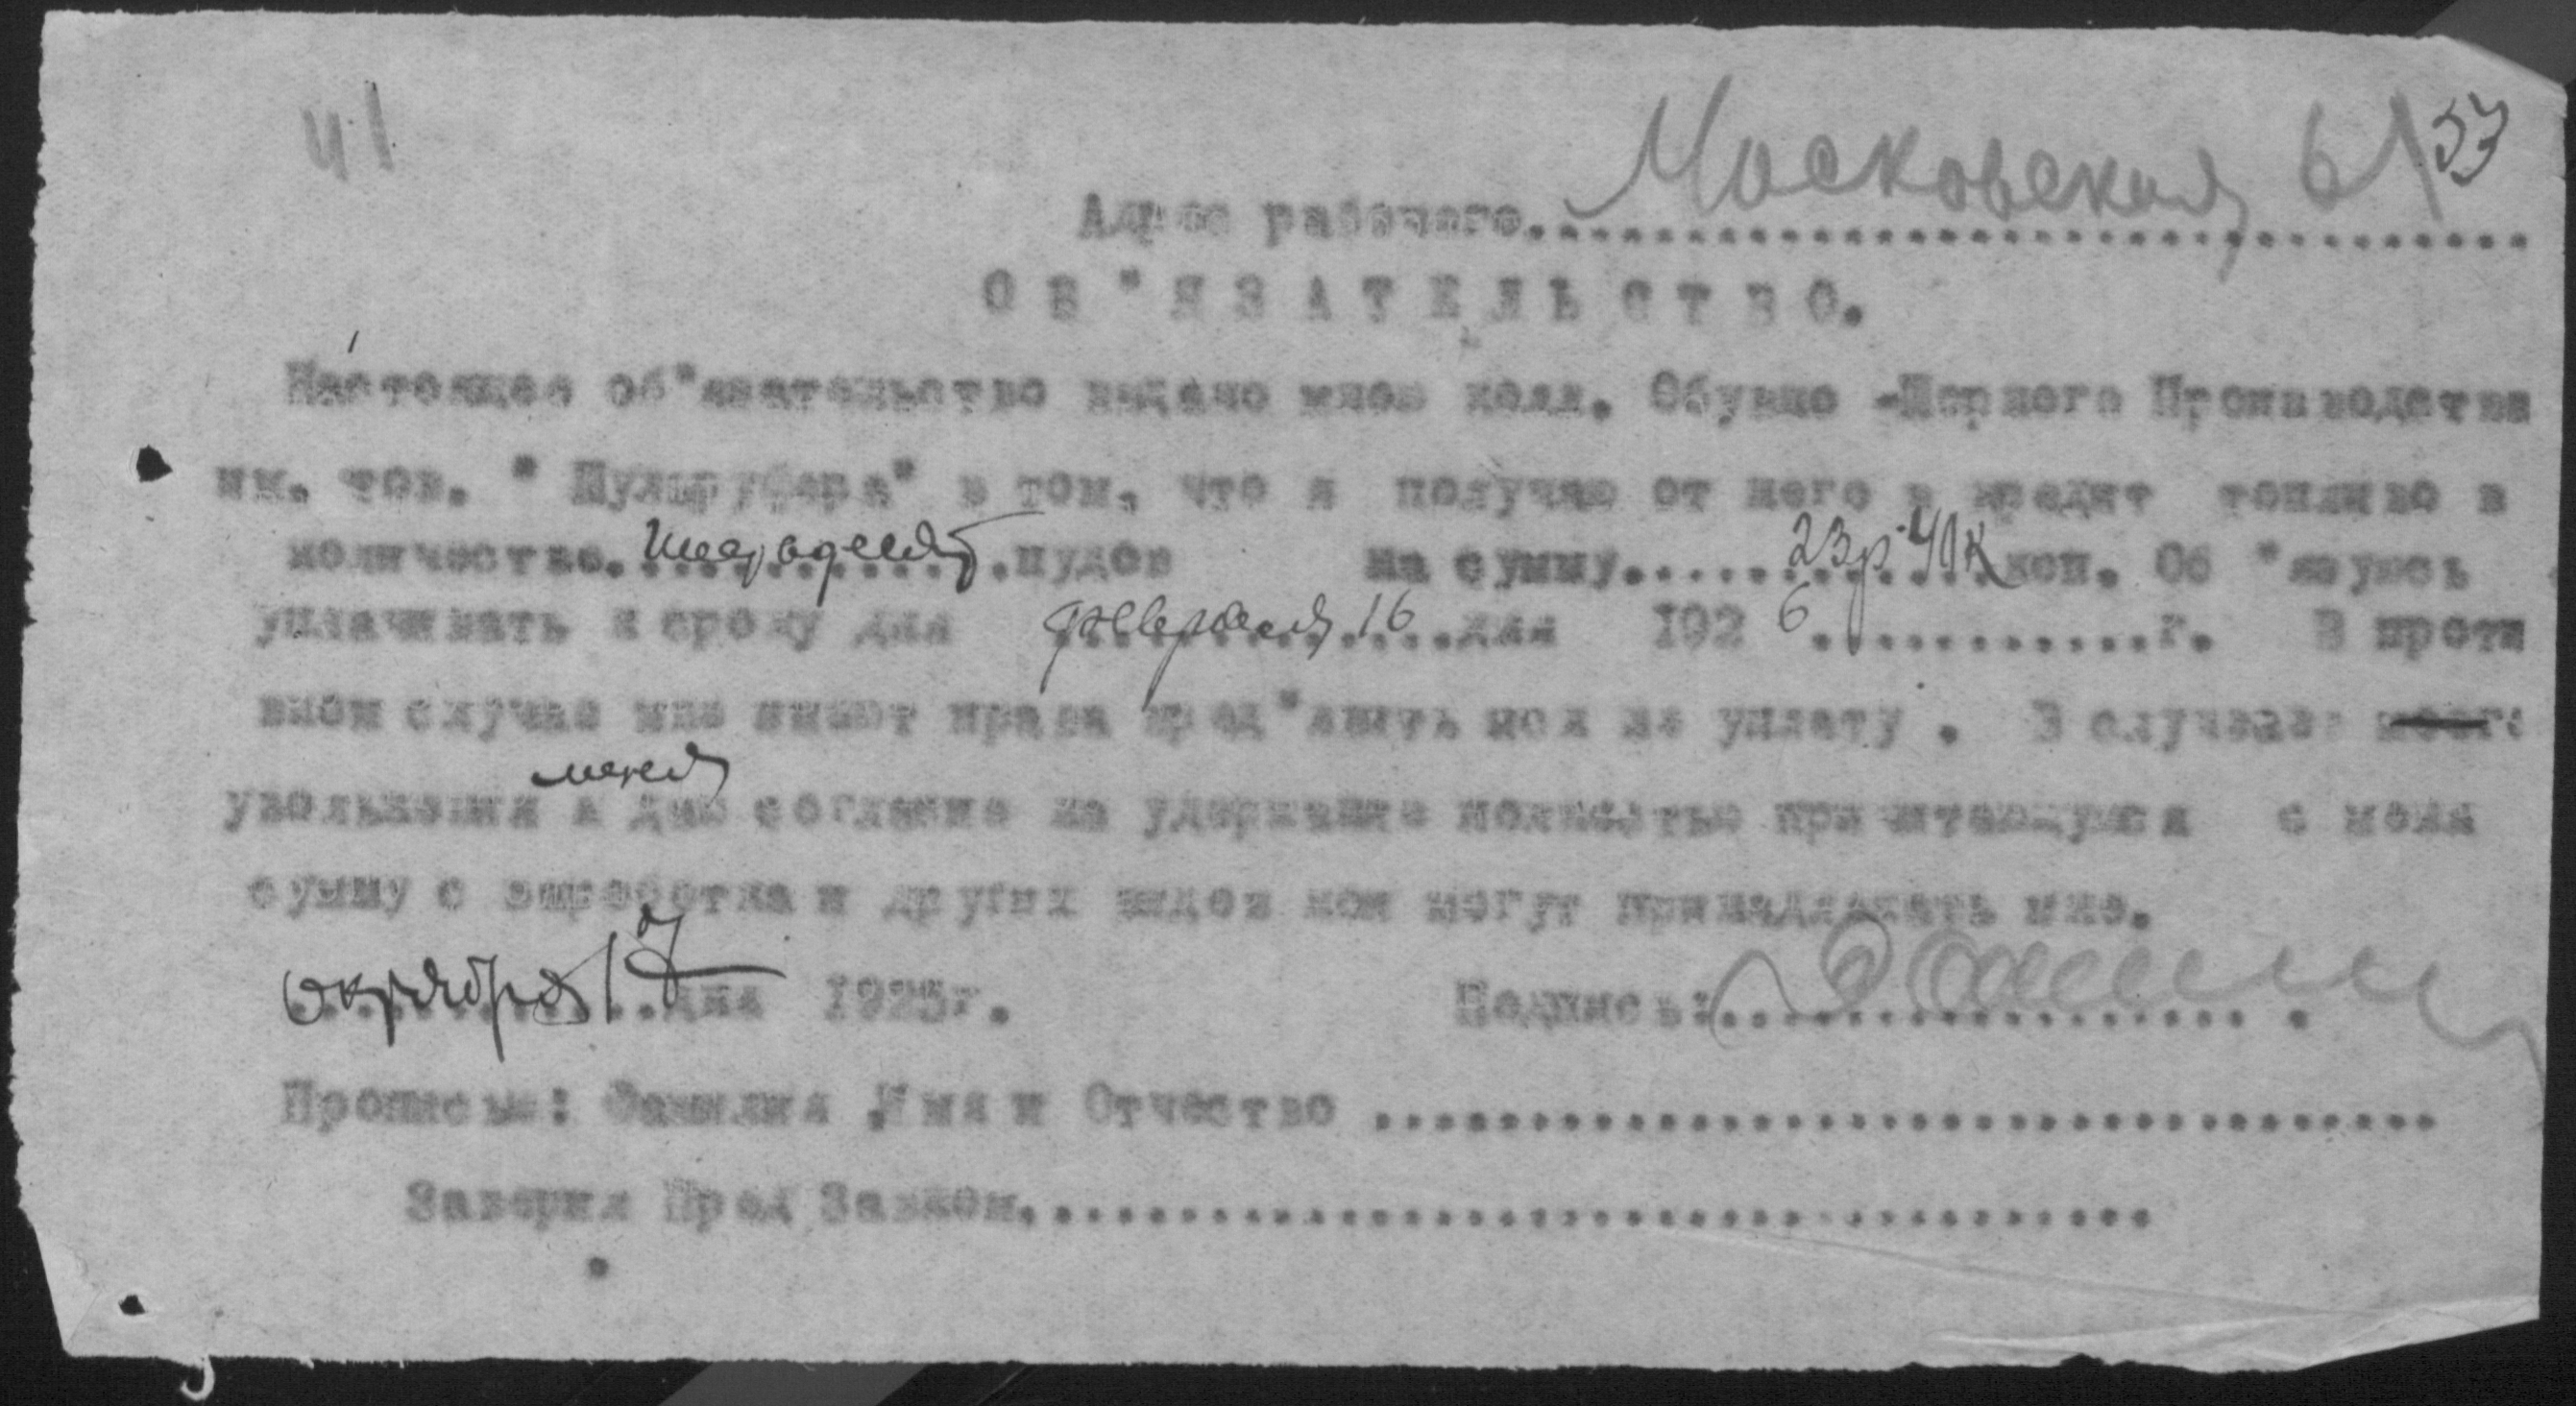 41
53
Адрес рабочего. Московская 61
ОБ"ЯЗАТЕЛЬСТВО.
Настоящее об"язательство выдано мною колл. Обувно -Шорного Производства
им. тов. " Мульруфера" в том, что я получаю от него в кредит топливо в
количестве. шестьдесят пудов на сумму. 23р. 40к коп. Об "язуюсь
уплачивать к сроку дня февраля 16 дня 192 6 г. В проти
вном случае мне имеют права пред"явить иск на уплату . В случаее моего
меня
увольнения я даю согласие на удержание полностью причитающуюся с меня
сумму с заработка и других видов кои могут принадлежать мне.
октября 17 дня 1925г. Подпись:
Прописью: Фамилия ,Имя и Отчество
Заверил Пред Завком.